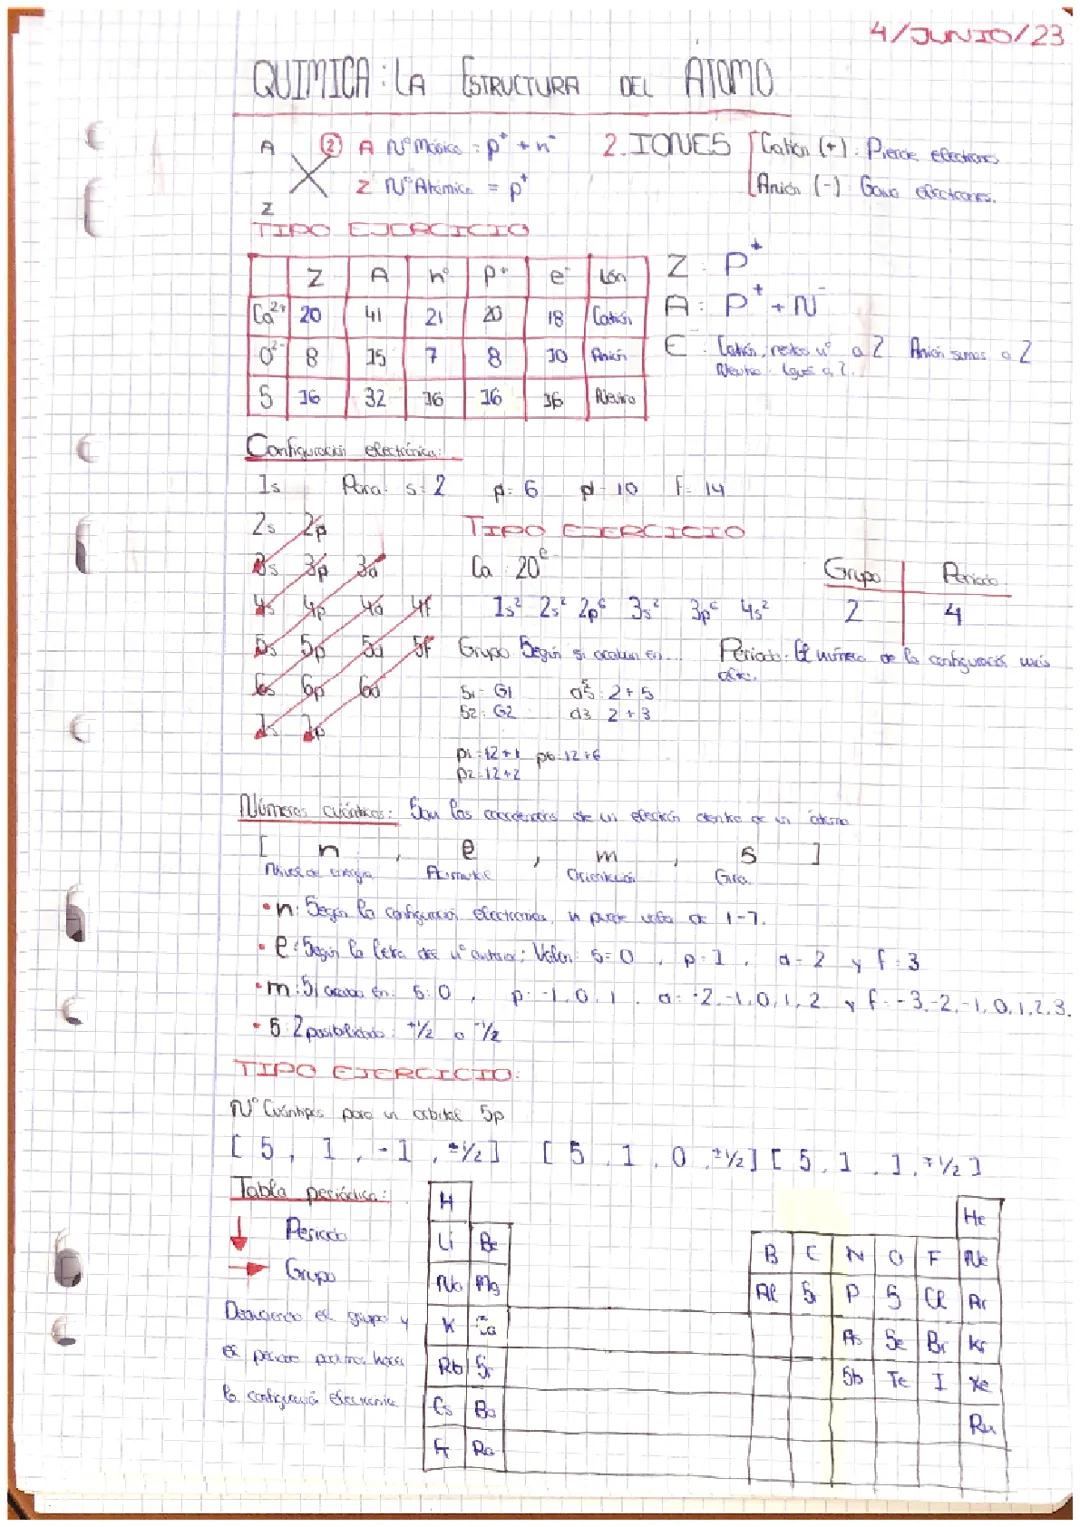 4/JUNIO/23
QUIMICA: LA ESTRUCTURA DEL ATOMO
A X Z
② A Nº Másico = p⁺ + n⁻
Z Nº Atómico = p⁺
2. IONES
Catión (+): Pierde electrones
Anión (-): Gana electrones.
TIPO EJERCICIO
Z A nº p⁺ e⁻ Ión
Ca²⁺ 20 41 21 20 18 Catión
O²⁻ 8 15 7 8 10 Anión
S 16 32 16 16 16 Neutro
Z: P⁺
A: P⁺ + N⁻
E: Catión, restas nº a Z Anión sumas a Z
Neutro: Igual a Z.
Configuración electrónica:
1s Para: s=2 p=6 d=10 f=14
2s 2p
3s 3p 3d
4s 4p 4d 4f
5s 5p 5d 5f
6s 6p 6d
7s 7p
TIPO EJERCICIO
Ca: 20e⁻
1s² 2s² 2p⁶ 3s² 3p⁶ 4s²
Grupo Periodo
2 4
Grupo: Según si acaban en...
S1- G1 d5: 2+5
S2: G2 d3 2+3
p1: 12+1 p6: 12+6
p2: 12+2
Periodo: El número de la configuración más
alto.
Números cuánticos: Son las coordenadas de un electrón dentro de un átomo
[ n , e , m , s ]
Nivel de energía Orientación Giro.
• n: Según la configuración electronica, n puede valer de 1-7.
• e: Según la letra del nº anterior; Valen: s=0, p=1, d=2 y f=3
• m: Si acaba en: s:0, p: -1,0,1. d: -2,-1,0,1,2 y f: -3,-2,-1,0,1,2,3.
• S: 2 posibilidades: +½ o -½
TIPO EJERCICIO:
Nº Cuánticos para un orbital 5p
[5, 1, -1, ±½] [5, 1, 0, ±½] [5, 1, 1, ±½]
Tabla periódica:
↓ Periodo
→ Grupo
el grupo y
el periodo podemos hacer
la configuración electronica
H He
Li Be B C N O F Ne
Na Mg Al Si P S Cl Ar
K Ca As Se Br Kr
Rb Sr Sb Te I Xe
Cs Ba Rn
Fr Ra